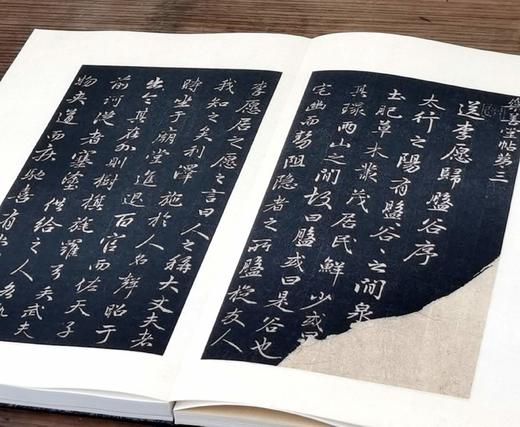 堂帖第三
送李愿歸盤谷序
太行之陽有盤谷〻之間泉
土肥草木叢茂居民鮮少或
其環兩山之間故曰盤或曰是谷也
宅幽而勢阻隱者之所盤旋友人
李愿居之愿之言曰人之稱大丈夫者
我知之矣利澤施於人名聲昭于
時坐于廟堂進退百官而佐天子
出令其在外則樹旗旄羅弓矢武夫
前呵從者塞塗供給之人各執
物夾道而疾馳喜有